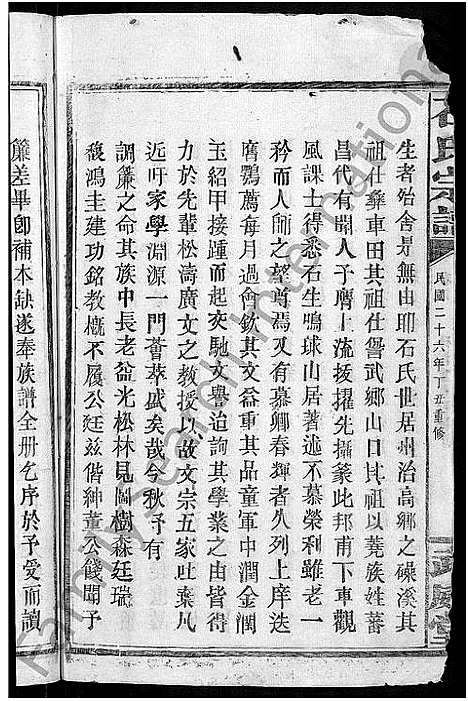 石氏宗譜
民國二十六年丁丑重修
生者殆舍是無由耶石氏世居州治高鄉之磜溪其
祖仕彝車田其祖仕譽武鄉山口其祖以堯族姓蕃
昌代有聞人予膺上流拔擢先攝篆此邦甫下車觀
風課士得悉石生鳴球山居著述不慕榮利雖老一
矜而人師之望尊焉又有慕卿春輝者久列上庠迭
膺鶚薦每月過會飲其文益重其品童軍中潤金潤
玉紹甲接踵而起爭馳文譽迨詢其學業之由皆得
力於先輩松濤廣文之教授以故文宗五家吐棄凡
近吁家學淵源一門薈萃盛矣哉今秋予有
調簾之命其族中長老益光松林見岡樹森廷瑞
馥鴻圭建功銘教概不履公廷茲偕紳董公餞聞予
簾差畢卽補本缺遂奉族譜全册乞序於予受而讀
Family Search International